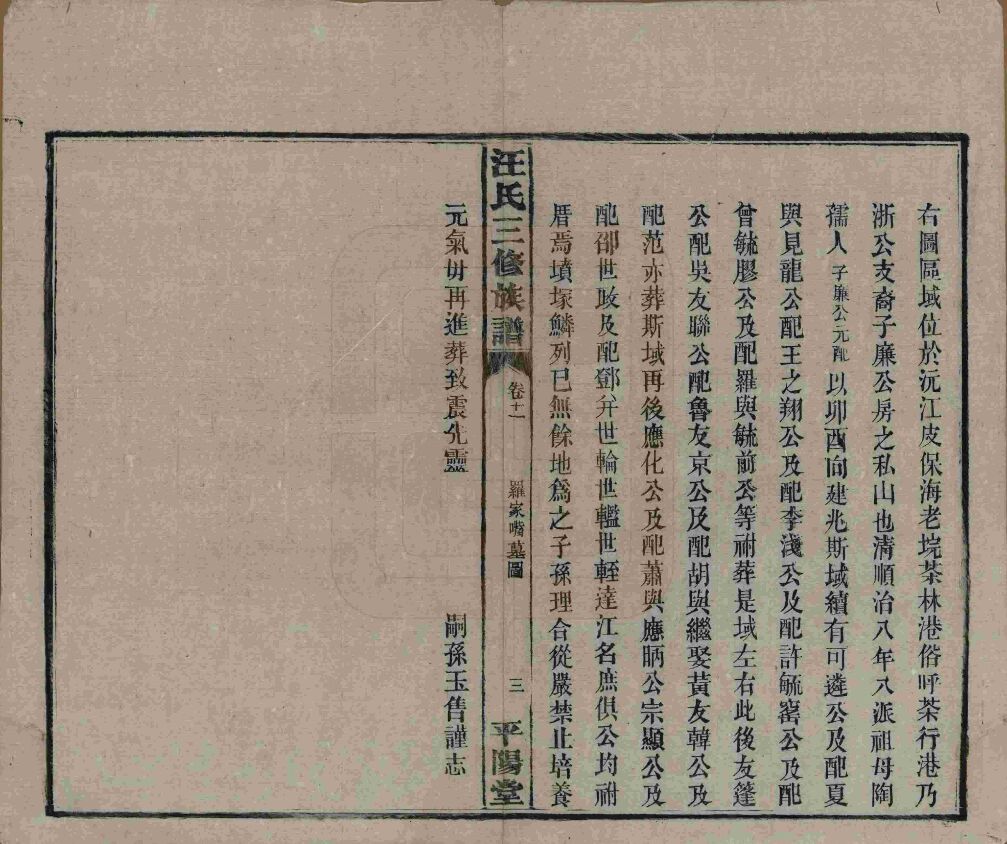 右圖區域位於沅江皮保海老垸茶林港俗呼茶行港乃
浙公支裔子廉公房之私山也清順治八年八派祖母陶
孺人子廉公元配以卯酉向建兆斯域續有可遴公及配夏
與見龍公配王之翔公及配李淺公及配許毓窰公及配
曾毓膠公及配羅與毓前公等祔葬是域左右此後友篷
公配吳友聯公配魯友京公及配胡與繼娶黃友韓公及
配范亦葬斯域再後應化公及配蕭與應昞公宗顯公及
配邵世敃及配鄧弁世輪世轞世輊達江名庶俱公均祔
厝焉墳塚鱗列已無餘地爲之子孫理合從嚴禁止培養
汪氏三修族譜
卷十一
羅家嘴墓圖
三
平陽堂
元氣毋再進葬致震先靈
嗣孫玉售謹志